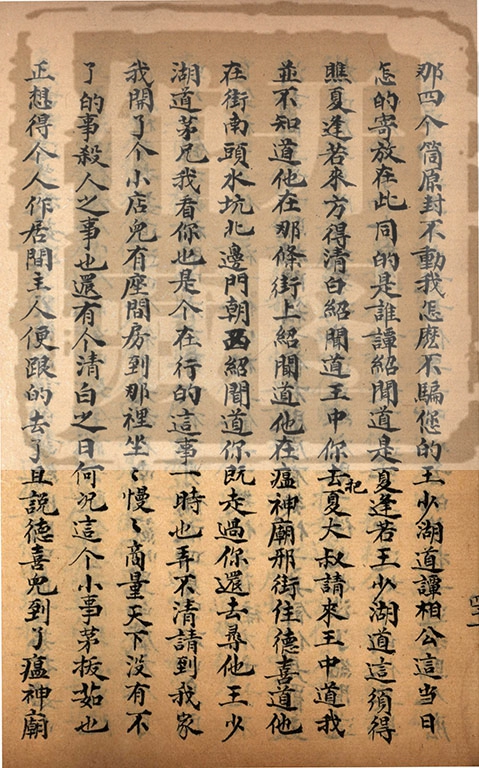 那四个筒原封不動我怎麽不騙您的王少湖道譚相公這当日
怎的寄放在此同的是誰譚紹聞道是夏逢若王少湖道這須得
瞧夏逢若來方得清白紹聞道王中你去把夏大叔請來王中道我
並不知道他在那條街上紹聞道他在瘟神廟那街住德喜道他
在街南頭水坑北邊門朝西紹聞道你既走過你還去尋他王少
湖道茅兄我看你也是个在行的這事一時也弄不清請到我家
我開了个小店兒有座間房到那裡坐〻慢〻商量天下没有不
了的事殺人之事也還有个清白之日何况這个小事茅拔茹也
正想得个人作居間主人便跟的去了且說德喜兒到了瘟神廟